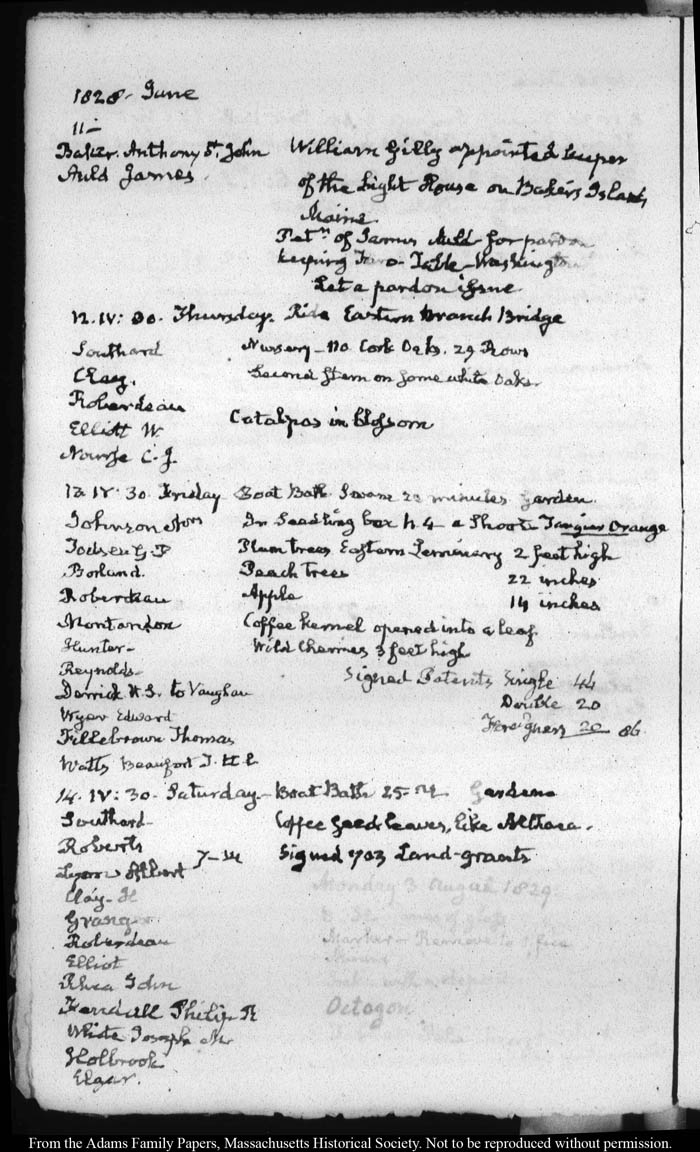 1828 - June
11 -
Baker. Anthony St. John William Gilly appointed keeper
Auld James. of the Light House on Bakers Island,
Maine.
Petn. of James Auld for pardon
keeping Faro-Table - Washington
Let a pardon issue
12. IV: 30. Thursday. Ride Eastern Branch Bridge
Southard Nursery - 110 Cork Oaks. 29 Rows
Clay. Second stem on some white Oaks.
Roberdeau
Elliott W. Catalpas in blossom
Nourse C. J.
13. IV: 30 Friday Boat Bath Swam 20 minutes Garden.
Johnson In Seedling box N. 4 a Shoot Tangier Orange
Plum trees Eastern Seminary 2 feet high
Borland. Peach Trees 22 inches
Roberdeau Apple 14 inches
Montandon Coffee kernel opened into a leaf.
Hunter - Wild Cherries 3 feet high
Reynolds - Signed Patents Single 44
Derrick W. S. to Vaughan Double 20
Wyer Edward Foreigners 20 86
Fillebrown Thomas
Watts Beaufort T.
14. IV: 30. Saturday - Boat Bath 25 Garden
Southard - Coffee seed leaves, like Althaea.
Roberts Signed 703 Land-grants
Clay - H
Granger
Roberdeau
Elliot
Rhea John
Fendall Philip R
White Joseph M.
Holbrook
Elgar.
Monday 3 August 1829
Octagon
From the Adams Family Papers, Massachusetts Historical Society. Not to be reproduced without permission.